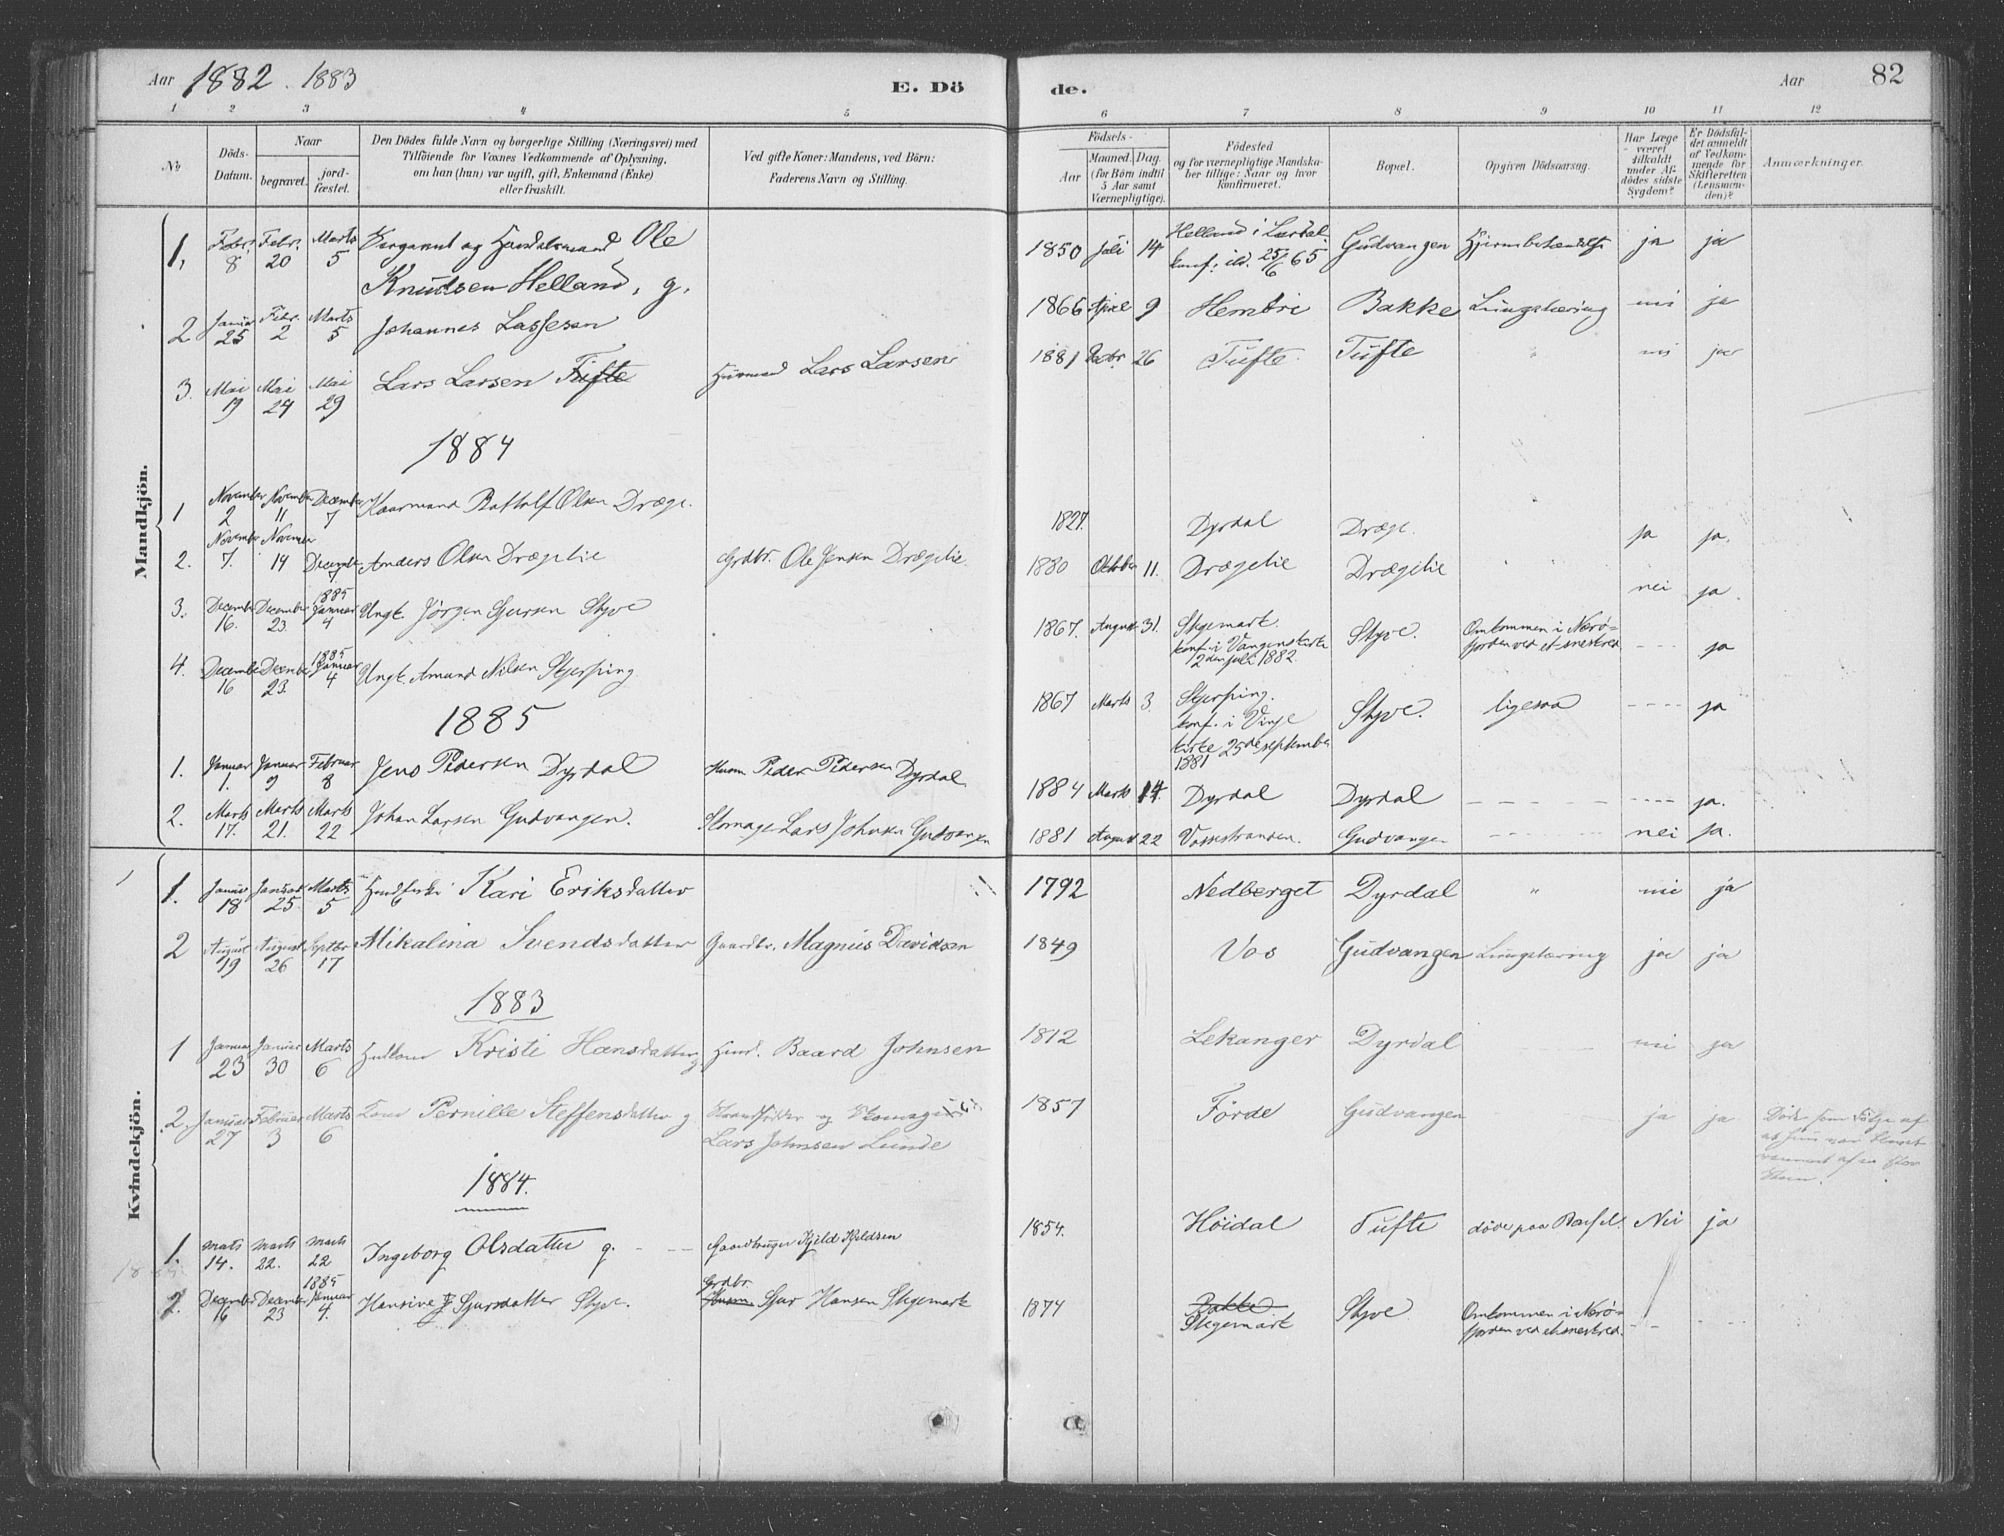 Aar 1882. 1883
E. Dö
de.
Aar
82
1. 2 3 4 5
6 7 8 9 10 11 12
No
Döds-
Datum.
Naar
begravet.
jord-
fæstet.
Den Dödes fulde Navn og borgerlige Stilling (Næringsvei) med
Tilföiende for Voxnes Vedkommende af Oplysning,
om han (hun) var ugift, gift, Enkemand (Enke)
eller fraskilt.
Ved gifte Koner: Mandens, ved Börn:
Faderens Navn og Stilling.
Födsels-
Aar
Maaned. Dag.
(for Börn indtil
5 Aar samt
Værnepligtige).
Födested
og for værnepligtige Mandska-
ber tillige: Naar og hvor
konfirmeret.
Bopæl.
Opgiven Dödsaarsag.
Har Læge
været
tilkaldt
under Af-
dödes sidste
Sygdom?
Er Dödsfal-
det anmeldt
af Vedkom-
mende for
Skifteretten
(Lensman-
den)?
Anmærkninger.
Mandkjön.
1, Febr. 8 Febr. 20 Marts 5 Ole
Knudsen Helland, g.
1850 Juli 14 Helland i Lærdal
konf: 25/6 65 Gudvangen ja ja
2 Januar 25 Febr. 2 Marts 5 Johannes Lassesen
1866 April 9 Hemбri Bakke Lungetæring nei ja
3. Mai 19 Mai 24 Mai 29 Lars Larsen Tufte Husmand Lars Larsen
1881 26 Tufte Tufte " nei ja
1884
1 November 2 November 11 December 7 Botholf Olsen Dræge.
1827. Dyrdal Dræge. ja ja.
2. November 7. November 14 December 7 Anders Olsen Drægelie Grdbr. Ole Jensen Drægelie.
1880 October 11. Drægelie Drægelie " nei ja.
3. December 16. December 23. 1885 Januar 4 Ungk. Jörgen Sjursen Styve
1867. August 31. Stegemark.
konf. i Vangenskirke
2den juli 1882. Styve. Omkommen i Nærö-
fjorden ved et sneskred --- ja
4. December 16 December 23 1885 Januar 4 Ungk. Amund Nilsen Skjerping
1867 Marts 3 Skjerping.
konf. i Vinje
kirke 25de september
1881 Styve. ligesaa ---- ja
1885
1. Januar 1. Januar 9 Februar 8 Jens Pedersen Dyrdal Husm Peder Pedersen Dyrdal
1884 Marts 14. Dyrdal Dyrdal ----- ---- ja.
2. Marts 17. Marts 21. Marts 22 Johan Larsen Gudvangen. Skomager Lars Johnsen Gudvangen
1881 August 22 Vossestranden. Gudvangen ---- nei ja.
Kvindekjön.
1. Januar 18 Januar 25. Marts 5 Kari Eriksdatter
1792 Nedberget Dyrdal " nei ja
2 August 19 August 26 Septbr 17 Mikalina Svendsdatter Gaardbr. Magnus Davidsen
1849 Vos Gudvangen Lungetæring ja ja
1883
1 Januar 23 Januar 30 Marts 6 Kristi Hansdatter Baard Johnsen
1812 Lekanger Dyrdal nei ja
2, Januar 27 Februar 3 Marts 6 Kone Pernille Steffensdatter g Strandsidder og Skomager
Lars Johnsen Lunde
1857 Förde Gudvangen ja ja
Döde som Fölge af
1884.
1. marts 14. marts 22. marts 22 Ingeborg Olsdatter g. --- Gaardbruger Kjeld Kjeldsen
1854. Höidal Tufte döde paa Barsel. Nei ja
2. December 16 December 23 1885 Januar 4. Hansine Sjursdatter Styve. Grdbr.
Husm Sjur Hansen Stegemark
1874 Bakke
Stegemark Styve Omkommen i Nærö-
fjorden ved et sneskred. -- ---